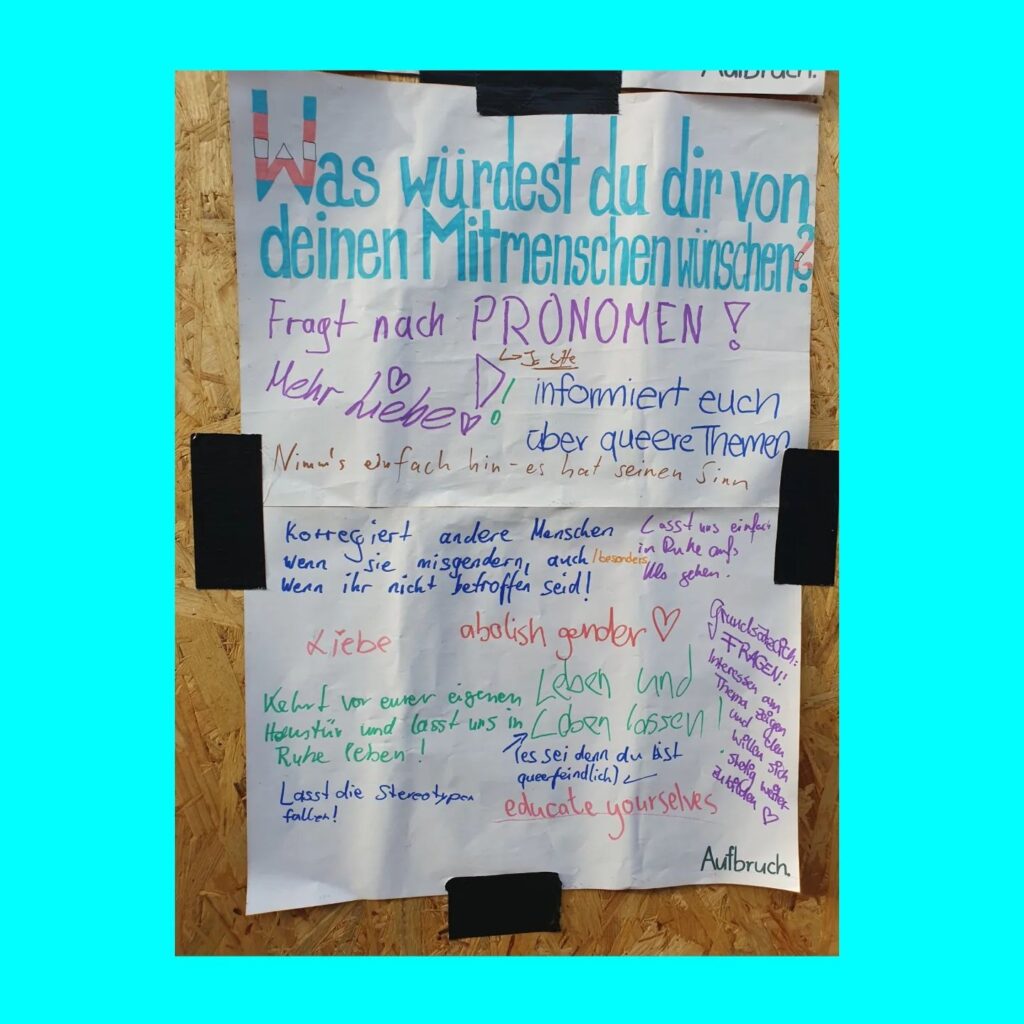 Aufbruch.
Was würdest du dir von
deinen Mitmenschen wünschen?
Fragt nach PRONOMEN!
↳ Ja bitte
Mehr Liebe!
!
informiert euch
über queere Themen
Nimm's einfach hin - es hat seinen Sinn
Korregiert andere Menschen
wenn sie misgendern, auch /besonders
wenn ihr nicht betroffen seid!
Lasst uns einfach
in Ruhe aufs
Klo gehen.
Liebe
abolish gender ♡
Grundsätzlich:
FRAGEN!
Interessen am
Thema zeigen
und den
willen sich
stetig weiter
zu bilden ♡
Kehrt vor eurer eigenen
Haustür und lasst uns in
Ruhe leben!
Leben und
Leben lassen!
(es sei denn du bist
queerfeindlich)
Lasst die Stereotypen
fallen!
educate yourselves
Aufbruch.